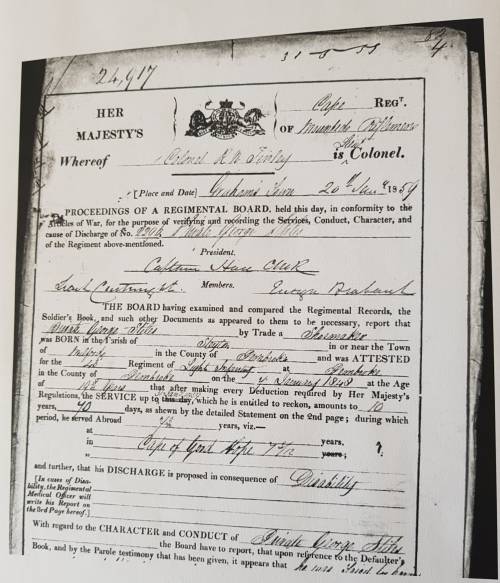 24,917
HER
MAJESTY'S
Whereof
Cape REGT.
OF Mounted Riflemen
is Colonel.
Colonel
[Place and Date] Graham's Town 20th 1859
PROCEEDINGS OF A REGIMENTAL BOARD, held this day, in conformity to the
Articles of War, for the purpose of verifying and recording the Services, Conduct, Character, and
cause of Discharge of No. Private George Stiles
of the Regiment above-mentioned.
President.
Captain
Members.
Lieut Ensign Brabant
THE BOARD having examined and compared the Regimental Records, the
Soldier's Book, and such other Documents as appeared to them to be necessary, report that
Private George Stiles by Trade a Shoemaker
was BORN in the Parish of in or near the Town
of in the County of Pembroke and was ATTESTED
for the Regiment of Light Infantry at Pembroke
in the County of Pembroke on the January 1848 at the Age
of Years that after making every Deduction required by Her Majesty's
Regulations, the SERVICE up to this day, which he is entitled to reckon, amounts to 10
years, 70 days, as shewn by the detailed Statement on the 2nd page; during which
period, he served Abroad years, viz.—
at
in Cape of Good Hope 7 years;
at
and further, that his DISCHARGE is proposed in consequence of Disability
[In cases of Disa-
bility, the Regimental
Medical Officer will
write his Report on
the 3rd Page hereof.]
With regard to the CHARACTER and CONDUCT of Private George Stiles
the Board have to report, that upon reference to the Defaulter's
Book, and by the Parole testimony that has been given, it appears that he was